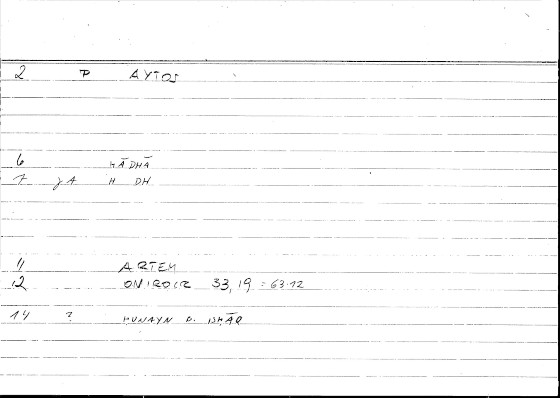 2 P AYTOS
6 HĀDHĀ
7 JA H DH
11 ARTEM
12 ONIROCR 33,19 = 63.12
14 ? HUNAYN B. ISHĀQ